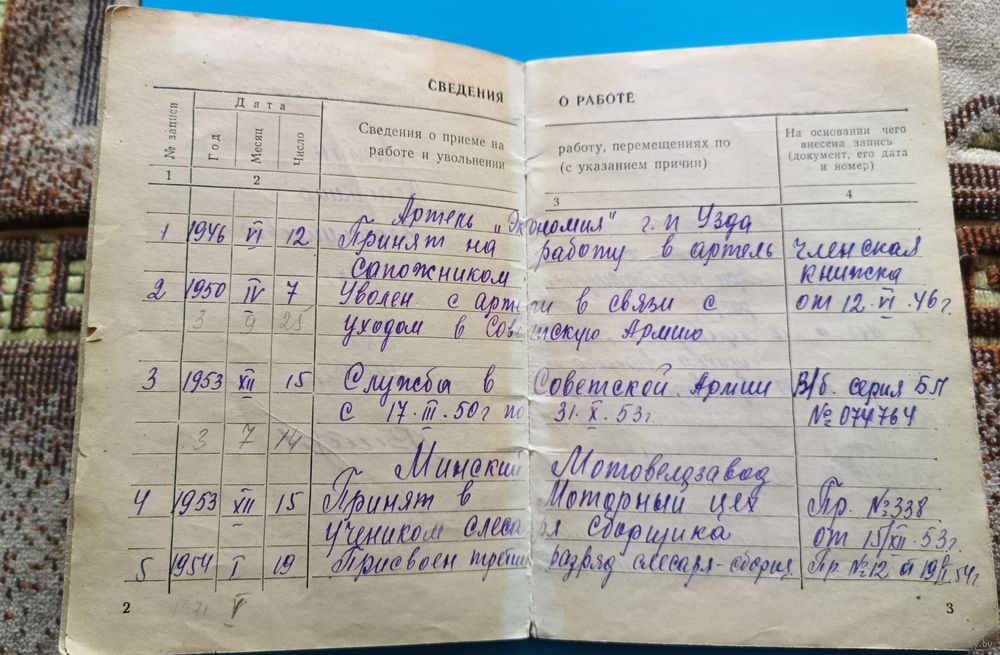 СВЕДЕНИЯ О РАБОТЕ
№ записи
Дата
Год
Месяц
Число
Сведения о приеме на работу, перемещениях по
работе и увольнении (с указанием причин)
На основании чего
внесена запись
(документ, его дата
и номер)
1 2 3 4
Артель „Экономия" г. п Узда
1 1946 VI 12 Принят на работу в артель членская
сапожником книжка
2 1950 IV 7 Уволен с артели в связи с от 12.VI.46г.
3 9 25 уходом в Советскую Армию
3 1953 XII 15 Служба в Советской Армии В/б. серия БП
с 17.III.50г по 31.X.53г. № 074764
3 7 14
Минский Мотовелозавод
4 1953 XII 15 Принят в Моторный цех Пр. № 338
учеником слесаря сборщика от 15/XII.53г.
5 1954 I 19 Присвоен третий разряд слесаря-сборщ. Пр. №12 от 19/I 54г.
2 V 3